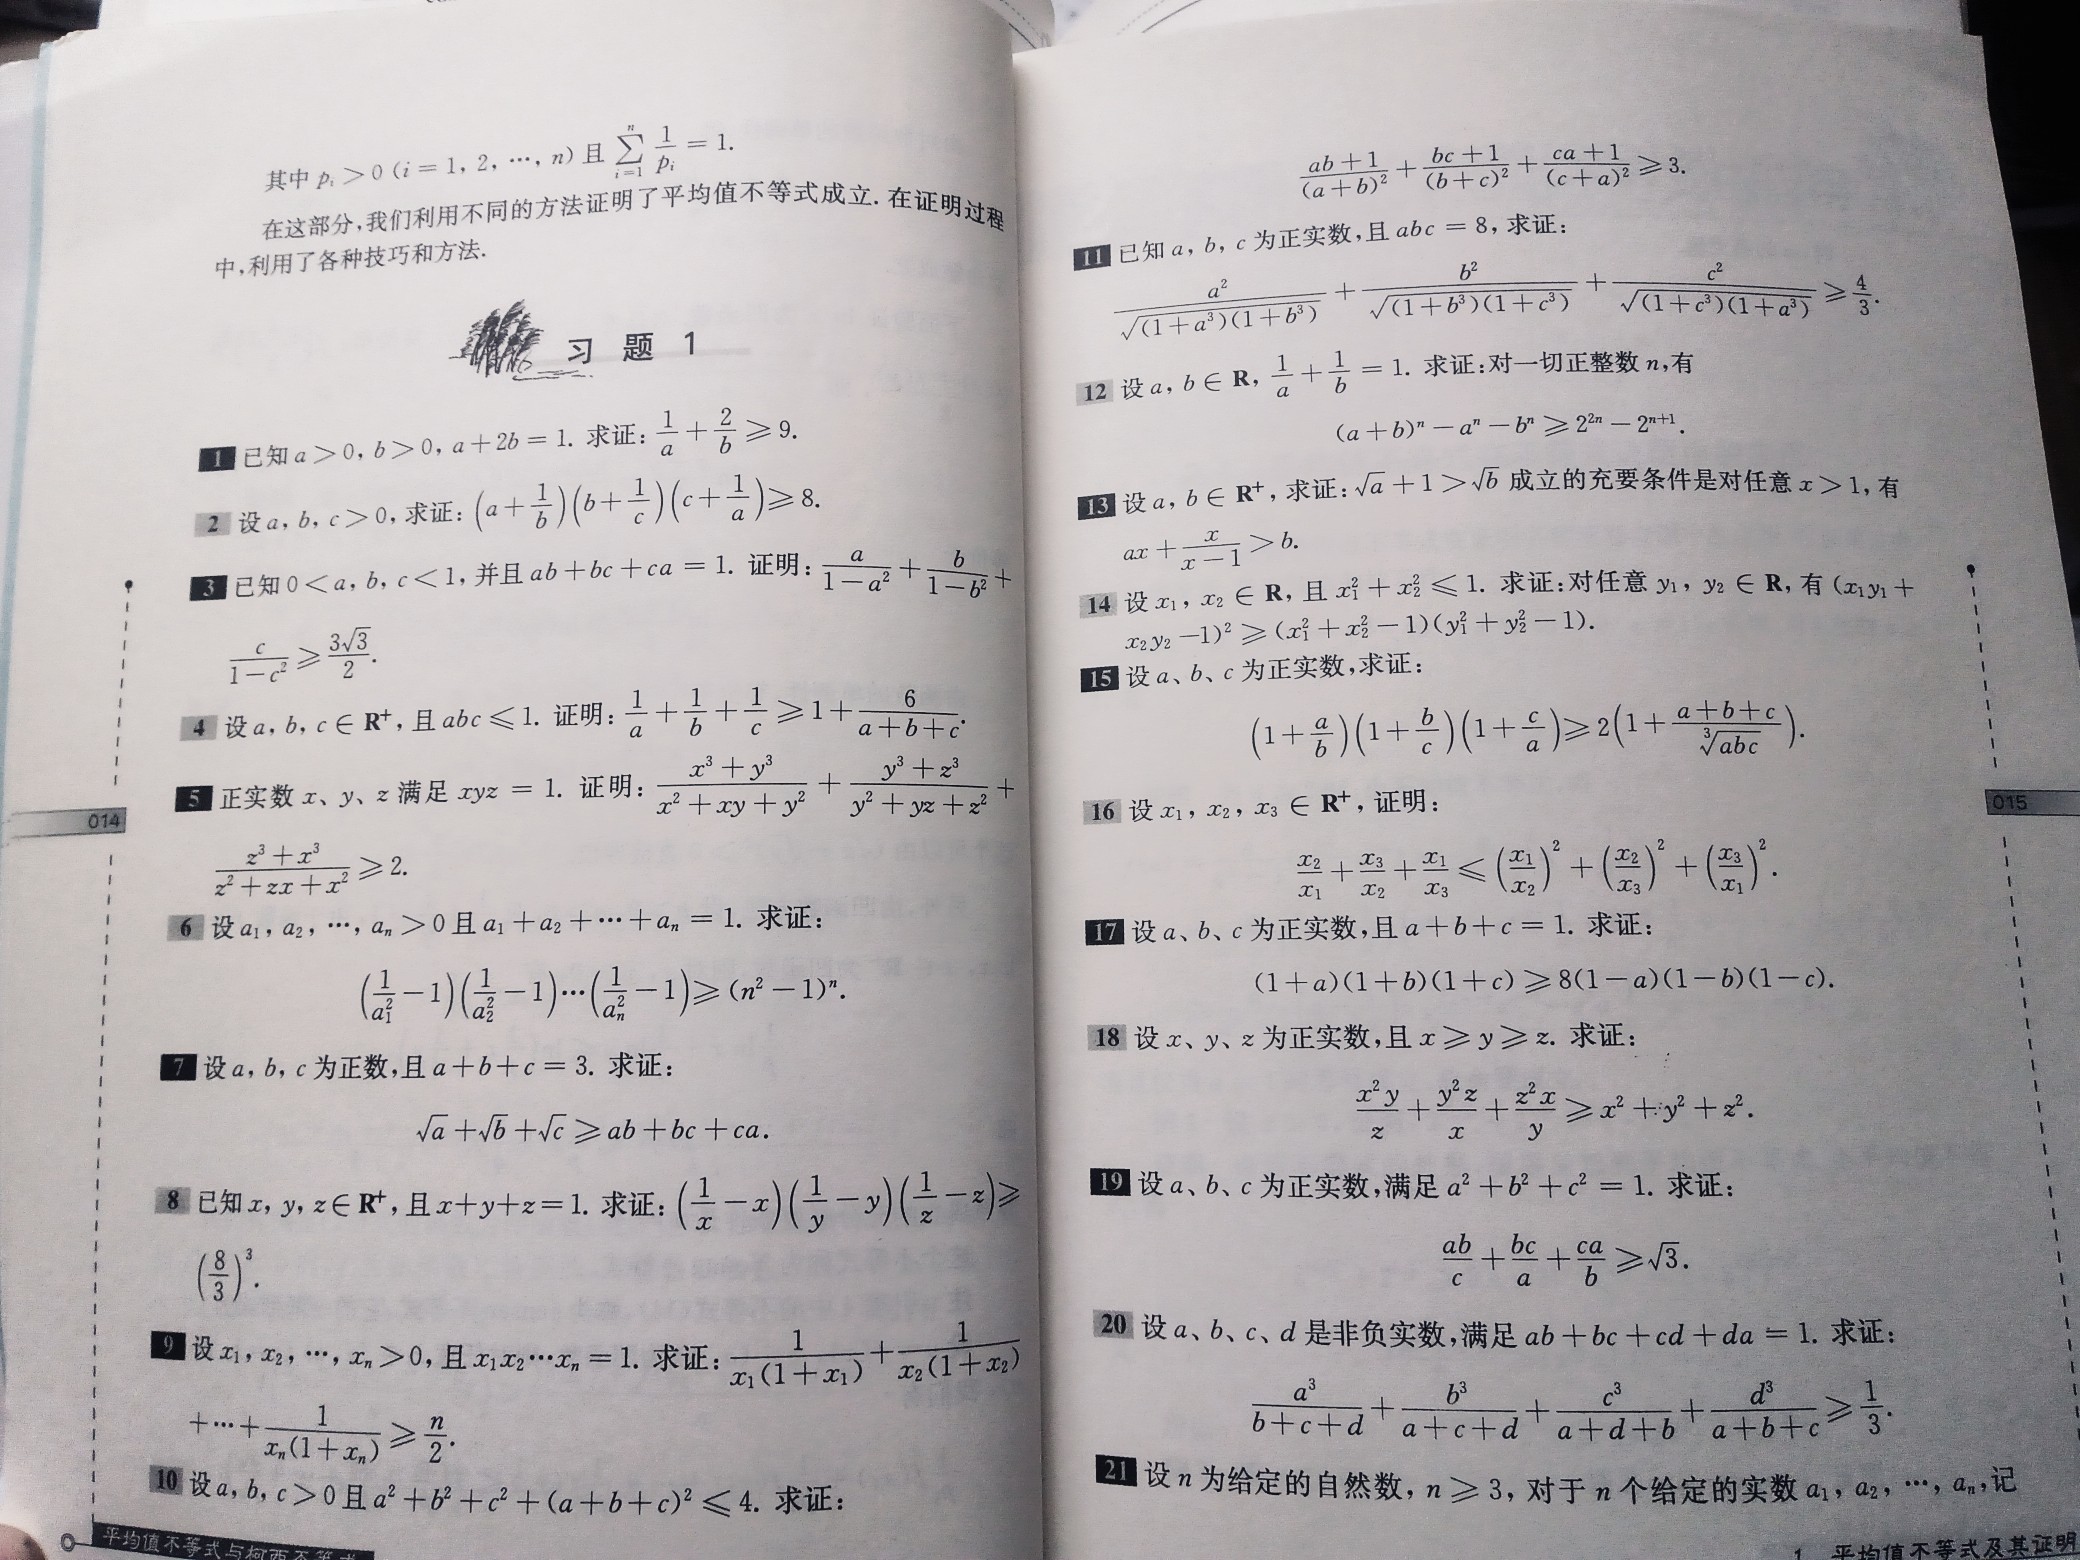 其中 pᵢ > 0 (i = 1, 2, …, n) 且 ∑ᵢ₌₁ⁿ 1/pᵢ = 1.
在这部分,我们利用不同的方法证明了平均值不等式成立. 在证明过程
中,利用了各种技巧和方法.
习 题 1
1 已知 a > 0, b > 0, a + 2b = 1. 求证: 1/a + 2/b ≥ 9.
2 设 a, b, c > 0, 求证: (a + 1/b)(b + 1/c)(c + 1/a) ≥ 8.
3 已知 0 < a, b, c < 1, 并且 ab + bc + ca = 1. 证明: a/(1−a²) + b/(1−b²) +
c/(1−c²) ≥ 3√3/2.
4 设 a, b, c ∈ R⁺, 且 abc ≤ 1. 证明: 1/a + 1/b + 1/c ≥ 1 + 6/(a+b+c).
5 正实数 x、y、z 满足 xyz = 1. 证明: (x³+y³)/(x²+xy+y²) + (y³+z³)/(y²+yz+z²) +
(z³+x³)/(z²+zx+x²) ≥ 2.
6 设 a₁, a₂, …, aₙ > 0 且 a₁ + a₂ + … + aₙ = 1. 求证:
(1/a₁² − 1)(1/a₂² − 1)…(1/aₙ² − 1) ≥ (n² − 1)ⁿ.
7 设 a, b, c 为正数,且 a + b + c = 3. 求证:
√a + √b + √c ≥ ab + bc + ca.
8 已知 x, y, z ∈ R⁺, 且 x + y + z = 1. 求证: (1/x − x)(1/y − y)(1/z − z) ≥
(8/3)³.
9 设 x₁, x₂, …, xₙ > 0, 且 x₁x₂…xₙ = 1. 求证: 1/(x₁(1+x₁)) + 1/(x₂(1+x₂))
+ … + 1/(xₙ(1+xₙ)) ≥ n/2.
10 设 a, b, c > 0 且 a² + b² + c² + (a+b+c)² ≤ 4. 求证:
014
平均值不等式与柯西不等式
(ab+1)/(a+b)² + (bc+1)/(b+c)² + (ca+1)/(c+a)² ≥ 3.
11 已知 a, b, c 为正实数,且 abc = 8, 求证:
a²/√((1+a³)(1+b³)) + b²/√((1+b³)(1+c³)) + c²/√((1+c³)(1+a³)) ≥ 4/3.
12 设 a, b ∈ R, 1/a + 1/b = 1. 求证:对一切正整数 n,有
(a+b)ⁿ − aⁿ − bⁿ ≥ 2²ⁿ − 2ⁿ⁺¹.
13 设 a, b ∈ R⁺, 求证: √a + 1 > √b 成立的充要条件是对任意 x > 1, 有
ax + x/(x−1) > b.
14 设 x₁, x₂ ∈ R, 且 x₁² + x₂² ≤ 1. 求证:对任意 y₁, y₂ ∈ R, 有 (x₁y₁ +
x₂y₂ − 1)² ≥ (x₁² + x₂² − 1)(y₁² + y₂² − 1).
15 设 a、b、c 为正实数,求证:
(1 + a/b)(1 + b/c)(1 + c/a) ≥ 2(1 + (a+b+c)/∛(abc)).
16 设 x₁, x₂, x₃ ∈ R⁺, 证明:
x₂/x₁ + x₃/x₂ + x₁/x₃ ≤ (x₁/x₂)² + (x₂/x₃)² + (x₃/x₁)².
17 设 a、b、c 为正实数,且 a + b + c = 1. 求证:
(1+a)(1+b)(1+c) ≥ 8(1−a)(1−b)(1−c).
18 设 x、y、z 为正实数,且 x ≥ y ≥ z. 求证:
x²y/z + y²z/x + z²x/y ≥ x² + y² + z².
19 设 a、b、c 为正实数,满足 a² + b² + c² = 1. 求证:
ab/c + bc/a + ca/b ≥ √3.
20 设 a、b、c、d 是非负实数,满足 ab + bc + cd + da = 1. 求证:
a³/(b+c+d) + b³/(a+c+d) + c³/(a+d+b) + d³/(a+b+c) ≥ 1/3.
21 设 n 为给定的自然数, n ≥ 3, 对于 n 个给定的实数 a₁, a₂, …, aₙ,记
015
1 平均值不等式及其证明